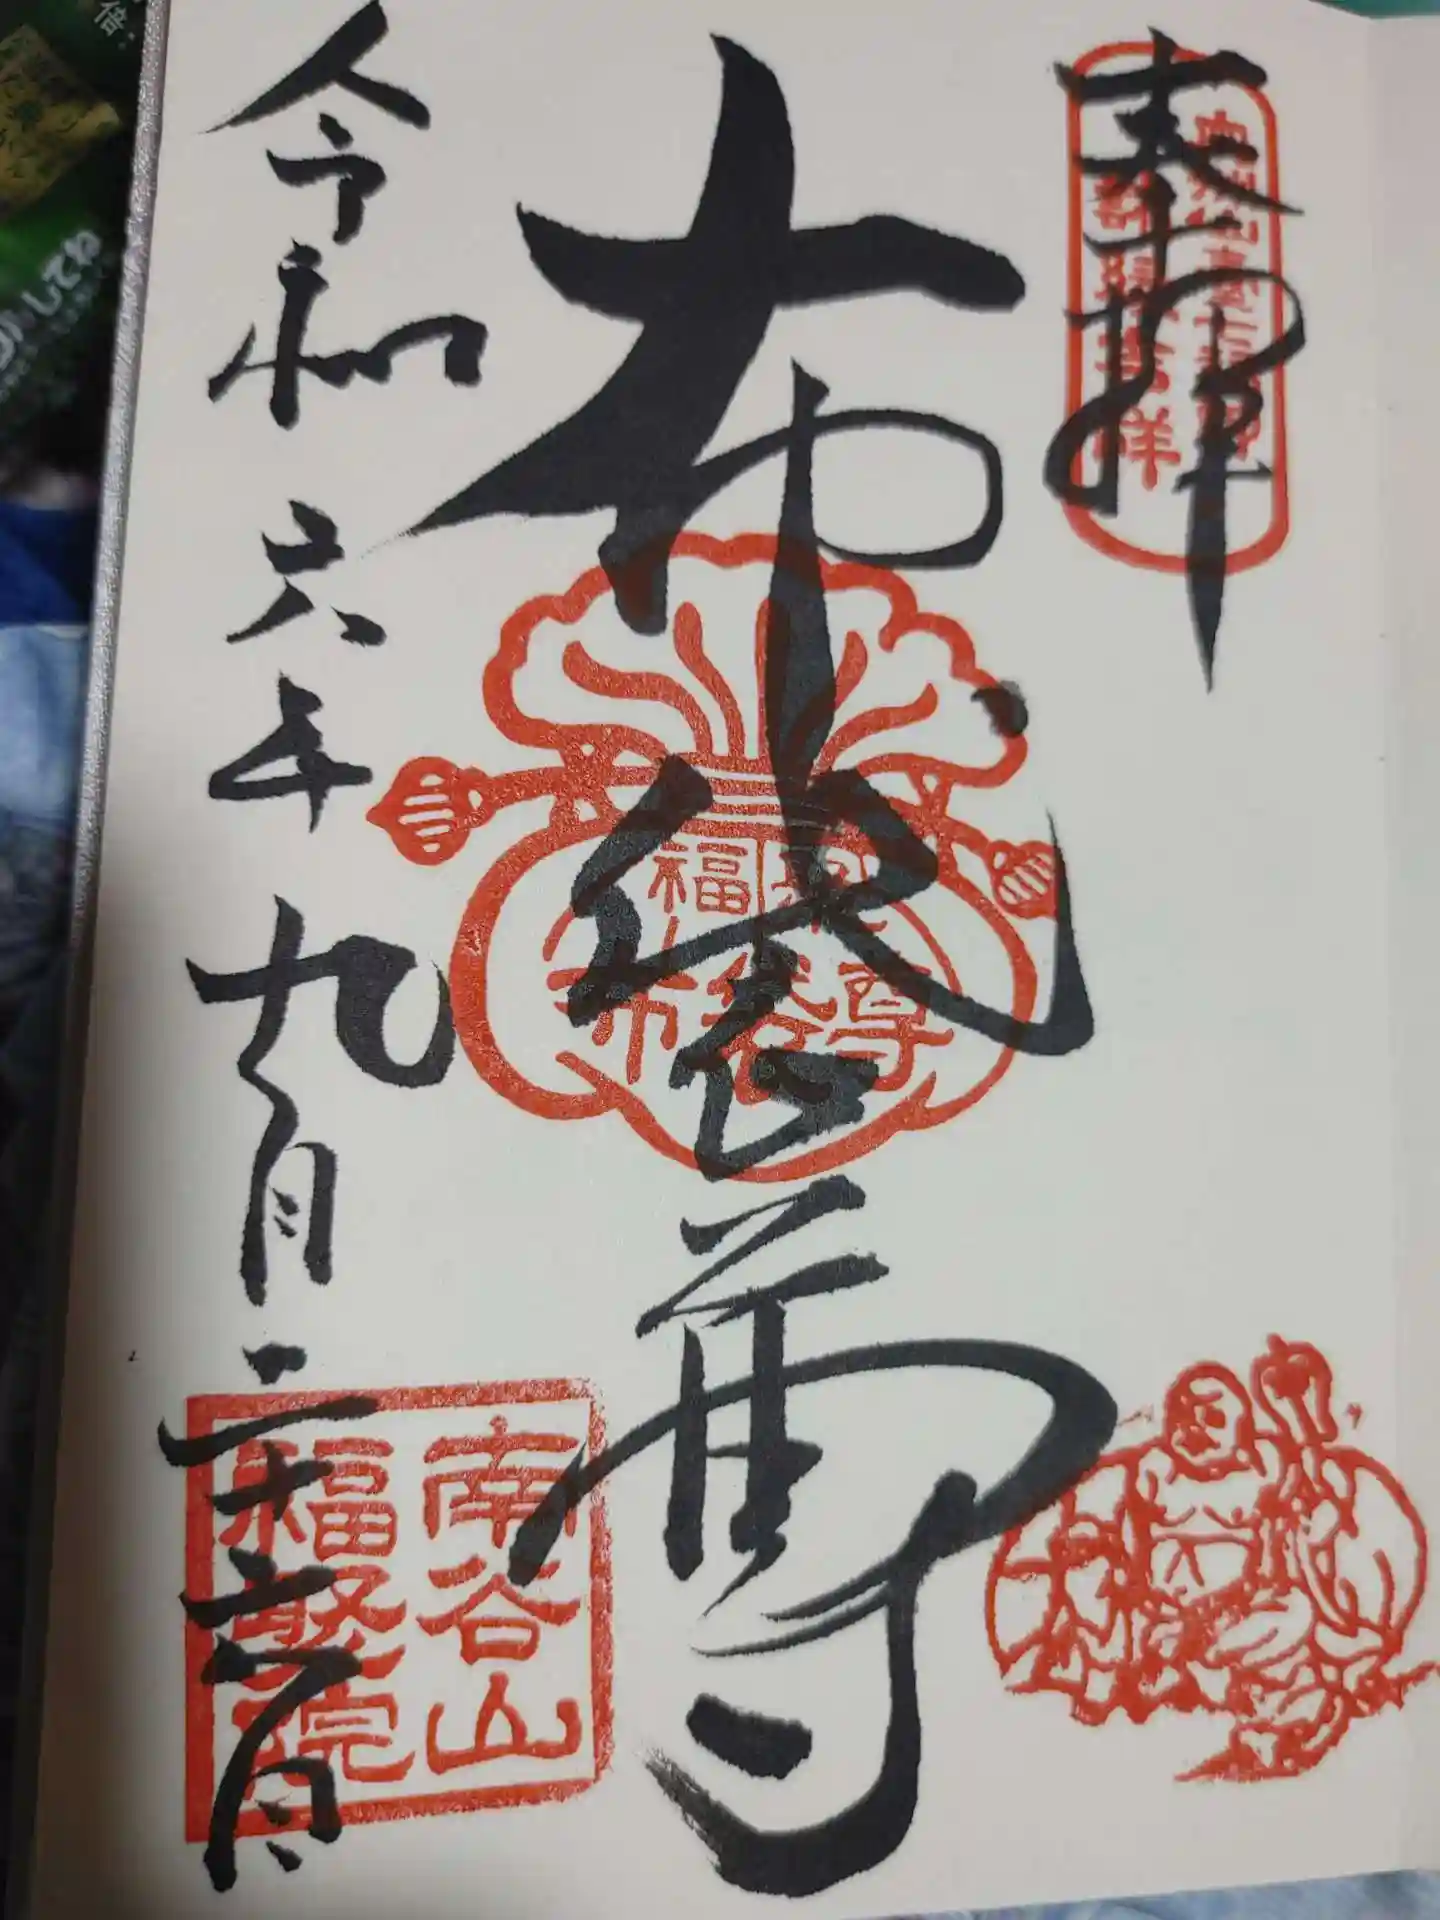 奉拝
布袋尊
福
布袋尊
令和六年九月二十六日
南谷山
福繁院